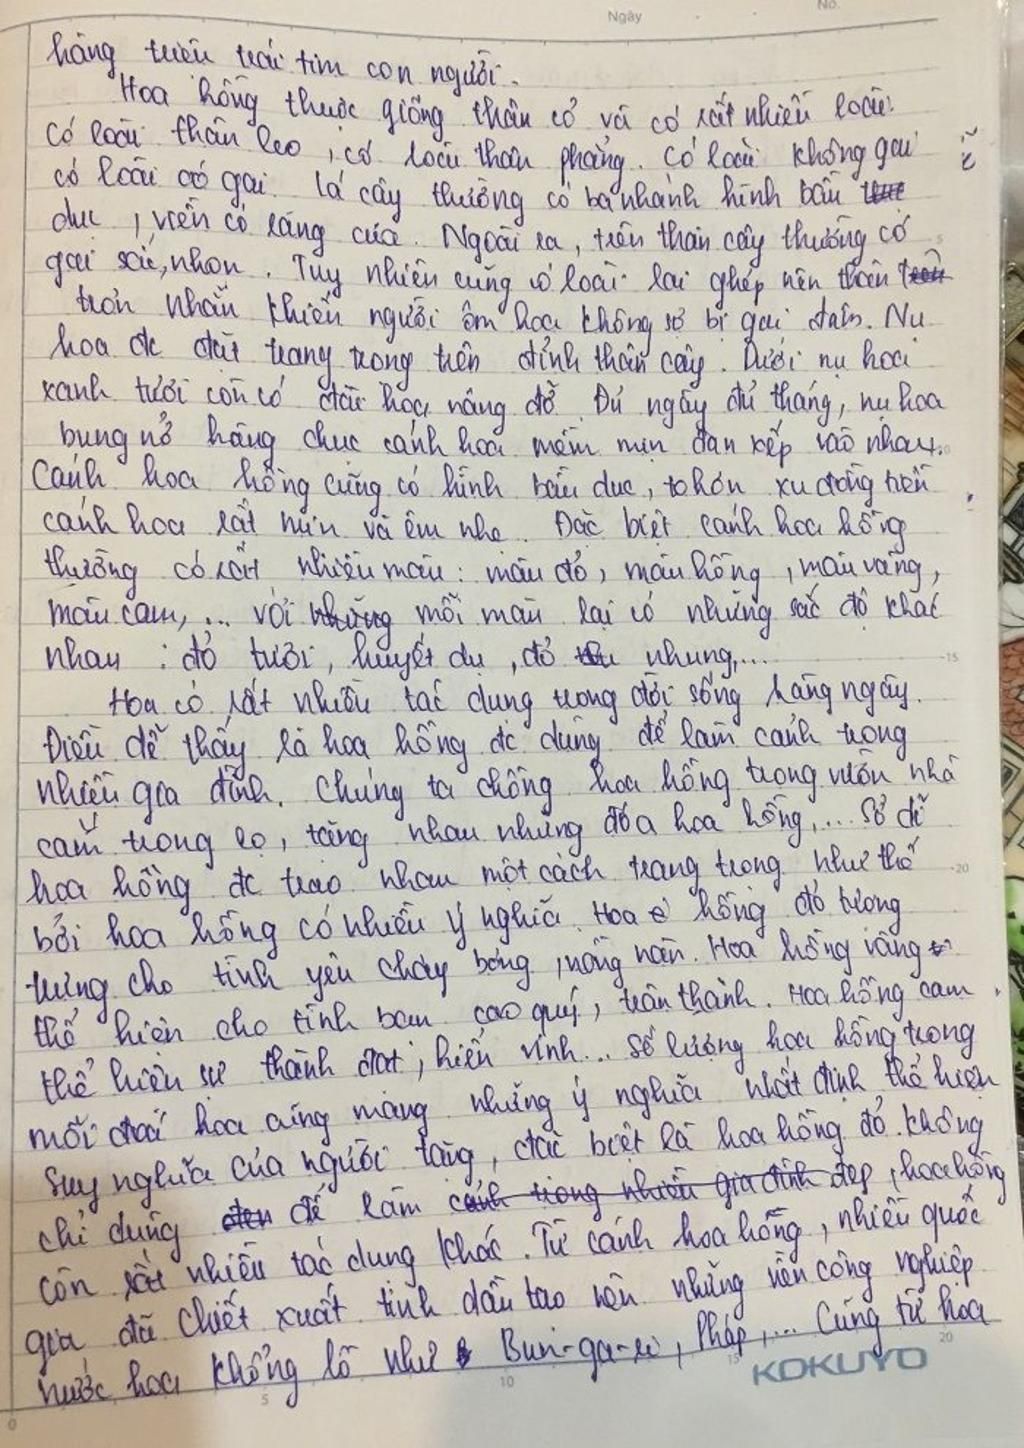 Ngày
No.
hàng triệu trái tim con người.
Hoa hồng thuộc giống thân cỏ và có rất nhiều loài:
có loài thân leo, có loài thân phẳng. Có loài không gai
có loài có gai. Lá cây thường có ba nhánh hình bầu
dục, viền có răng cưa. Ngoài ra, trên thân cây thường có
gai sắc, nhọn. Tuy nhiên cũng có loài lai ghép nên thân
trơn nhẵn khiến người ôm hoa không sợ bị gai đâm. Nụ
hoa đc đặt trang trọng trên đỉnh thân cây. Dưới nụ hoa
xanh tươi còn có đài hoa nâng đỡ. Đủ ngày đủ tháng, nụ hoa
bung nở hàng chục cánh hoa mềm mịn đan xếp vào nhau.
Cánh hoa hồng cũng có hình bầu dục, to hơn
cánh hoa rất mịn và êm nhẹ. Đặc biệt cánh hoa hồng
thường có rất nhiều màu: màu đỏ, màu hồng, màu vàng,
màu cam, ... với mỗi màu lại có những sắc độ khác
nhau: đỏ tươi, huyết dụ, đỏ nhung,...
Hoa có rất nhiều tác dụng trong đời sống hàng ngày.
Điều dễ thấy là hoa hồng đc dùng để làm cảnh trong
nhiều gia đình. Chúng ta chồng hoa hồng trong vườn nhà
cắm trong lọ, tặng nhau những đóa hoa hồng,... Sở dĩ
hoa hồng đc trao nhau một cách trang trọng như thế
bởi hoa hồng có nhiều ý nghĩa. Hoa hồng đỏ tượng
trưng cho tình yêu cháy bỏng, nồng nàn. Hoa hồng vàng
thể hiện cho tình bạn cao quý, trân thành. Hoa hồng cam
thể hiện sự thành đạt, hiển vinh... Số lượng hoa hồng trong
mỗi đoá hoa cũng mang những ý nghĩa nhất định thể hiện
suy nghĩa của người tặng, đặc biệt là hoa hồng đỏ. Không
chỉ dùng để làm cảnh trong nhiều gia đình đẹp, hoa hồng
còn rất nhiều tác dụng khác. Từ cánh hoa hồng, nhiều quốc
gia đã chiết xuất tinh dầu tạo nên những nền công nghiệp
nước hoa khổng lồ như Bun-ga-ri, Pháp,... Cũng từ hoa
KOKUYO